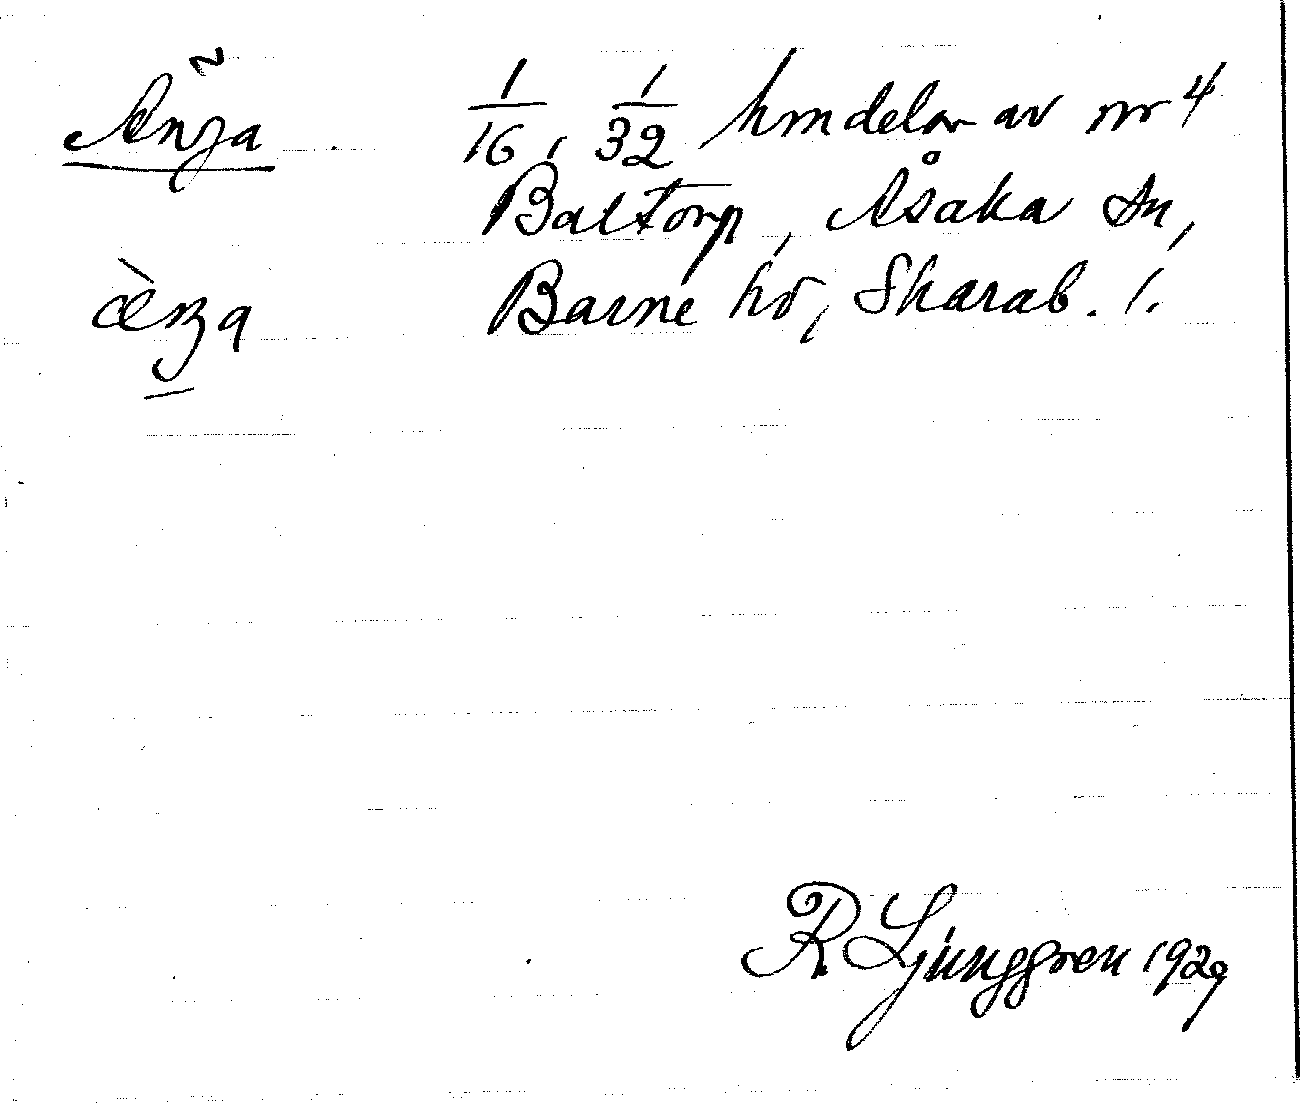 Änga 1/16, 1/32 hmdelar av nr 4
Baltorp, Åsaka sn,
æ̀nga Barne hd, Skarab. l.
R Ljunggren 1929